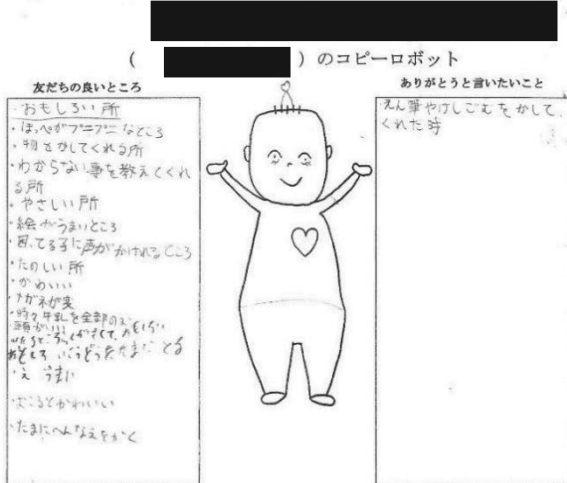 (　　　　　) のコピーロボット
友だちの良いところ
・おもしろい所
・ほっぺがプニプニなところ
・物をかしてくれる所
・わからない事を教えてくれ
る所
・やさしい所
・絵がうまいところ
・困ってる子に声がかけれるところ
・たのしい所
・かわいい
・メガネが
・時々牛乳を全部の
・頭がいい
・え うまい
かわいい
・たまにへんなえをかく
ありがとうと言いたいこと
えん筆やけしごむをかして
くれた時